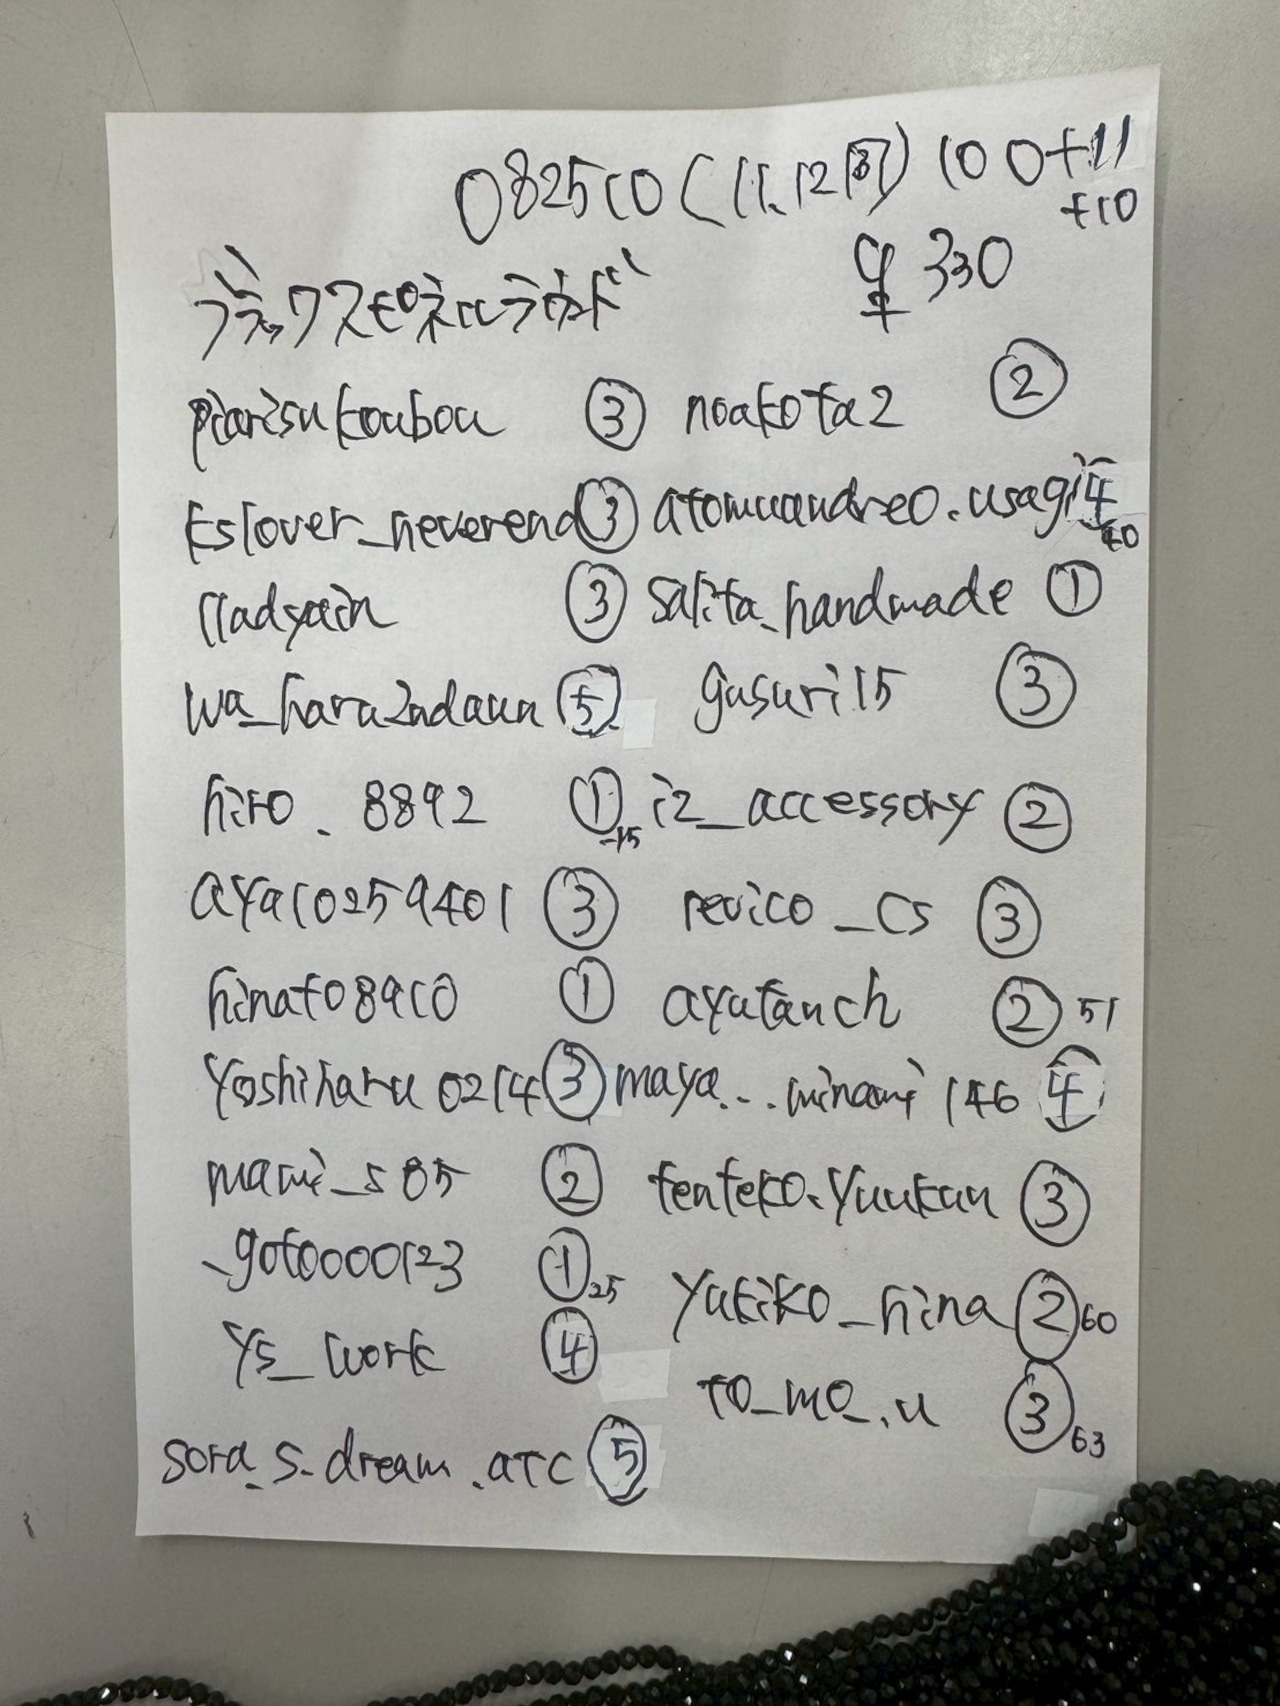 082510 (11.12月) 100+11
+10
ブラックスピネルラウンド 単330
piarisukoubou ③ noakota2 ②
Eslover_neverend ③ atomuandreo.usagi ④
40
lladyain ③ salita_handmade ①
wa_haru2ndaun ⑤ gusuri15 ③
hiro.8892 ① 15 iz_accessory ②
aya10259401 ③ revico_cs ③
hinato8910 ① ayutanch ② 51
yoshiharu0214 ③ maya...minami146 ④
mami_s85 ② tenteko.yuukun ③
_goto0000123 ① 25 yukiko_hina ② 60
ys_work ④ to_mo_.u ③ 63
sora.s.dream.arc ⑤